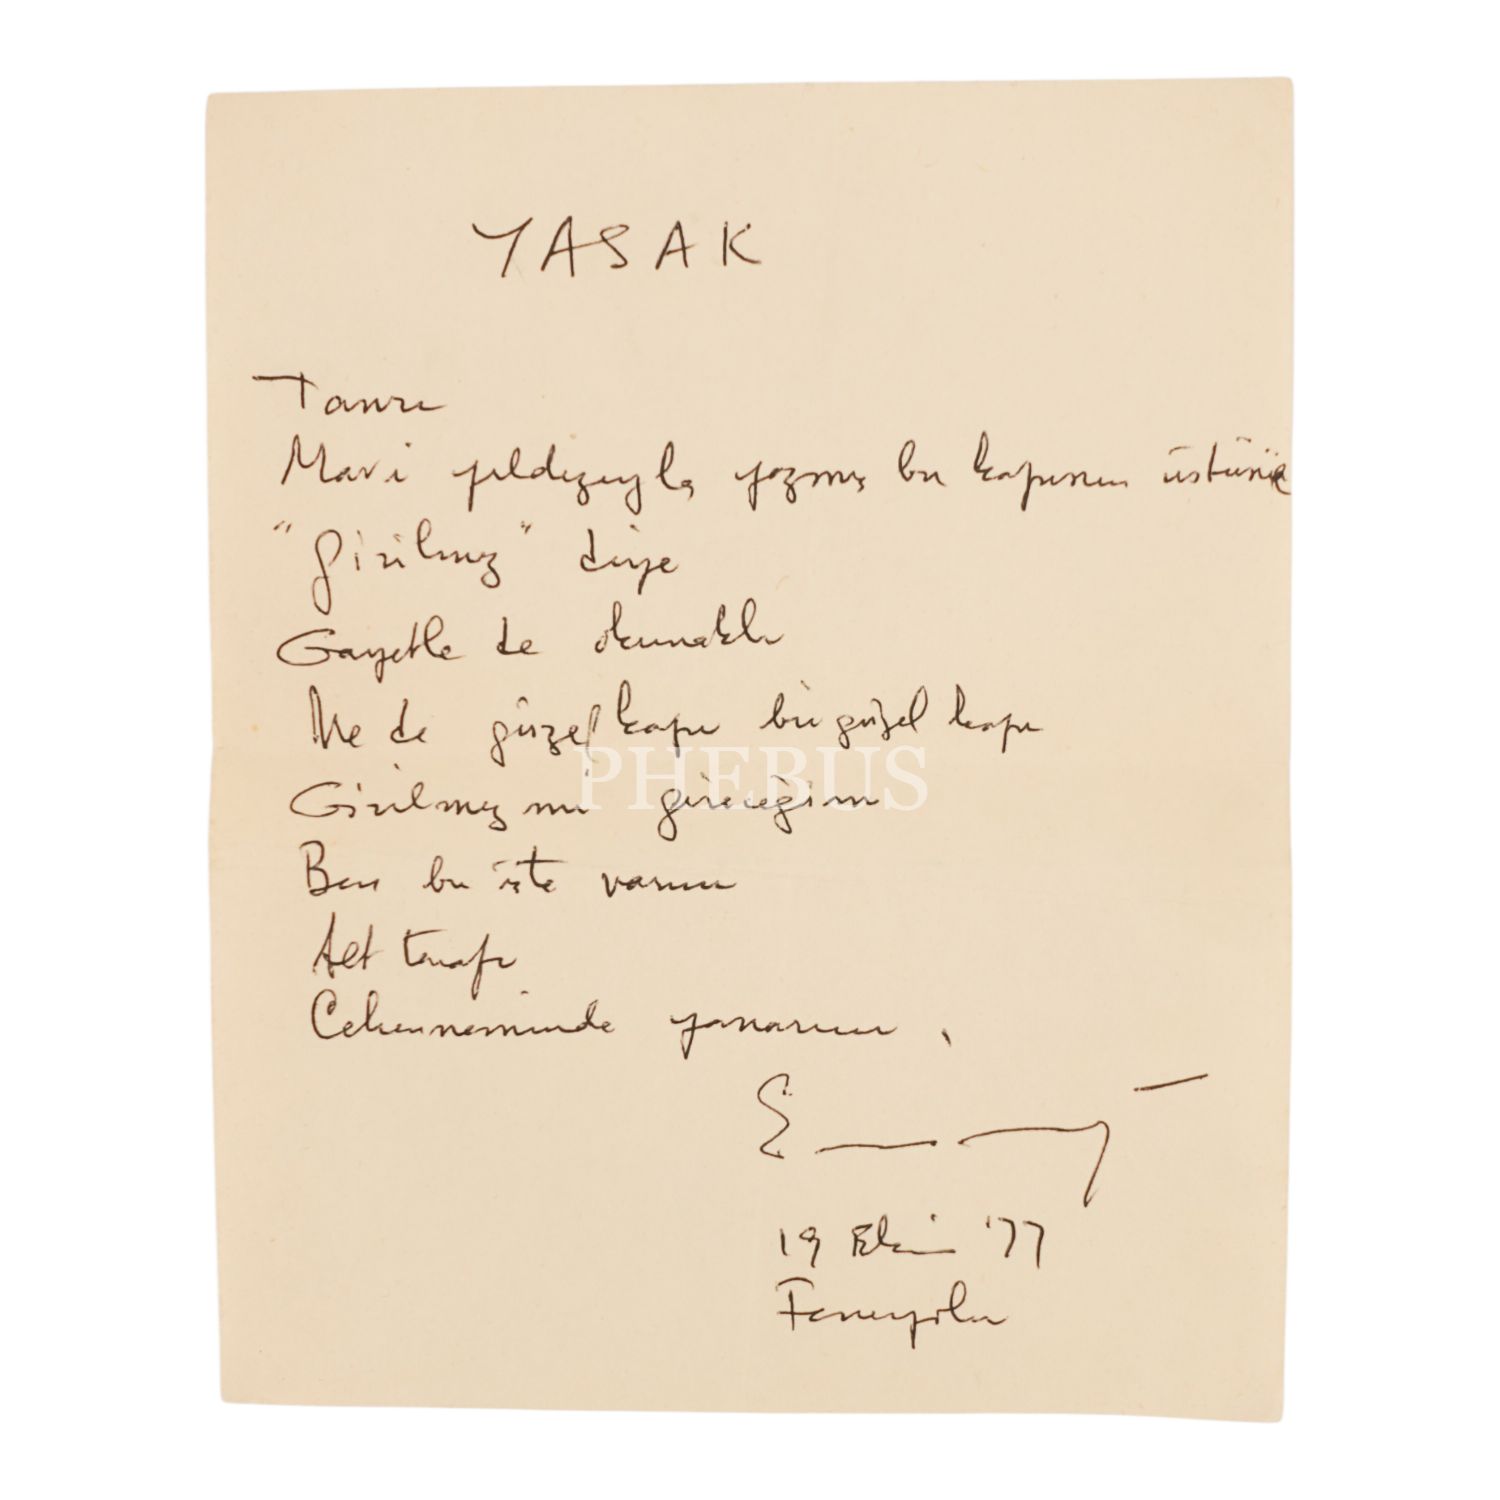 YASAK
Tanrı
Mavi yıldızıyla yazmış bu kapının üstüne
"girilmez" diye
Gayetle de okunaklı
Ne de güzel kapı bu güzel kapı
Girilmez mi gireceğim
Ben bu işte varım
Alt tarafı
Cehenneminde yanarım.
PHEBUS
19 Ekim '77
Feneryolu